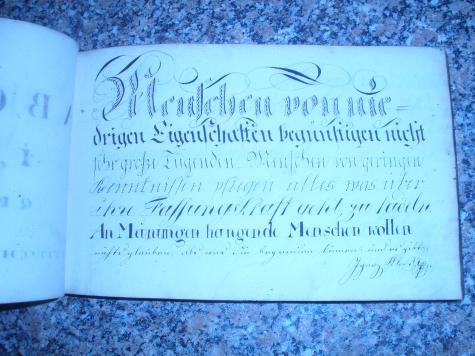 Menschen von nie=
drigen Eigenschaften begünstigen nicht
sehr große Tugenden. Menschen von geringen
Kenntnissen pflegen alles was über
ihre Fassungskraft geht, zu tadeln.
An Mainungen hangende Menschen wollen
nichts glauben, als was sie begreifen können
Ignaz